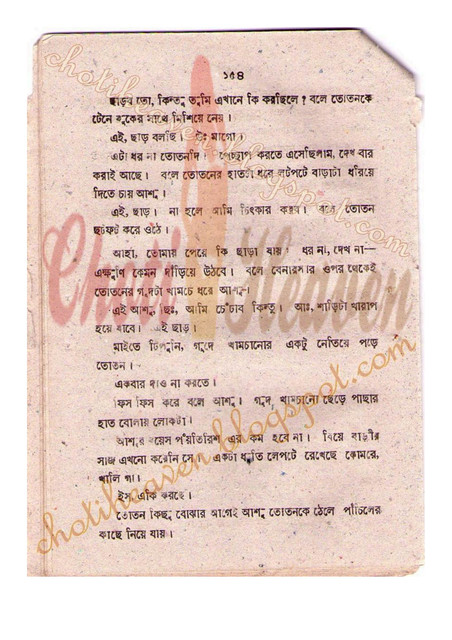 ১৫৪
ছাড়ব তো, কিন্তু তুমি এখানে কি করছিলে? বলে তোতনকে
টেনে বুকের সাথে মিশিয়ে নেয়।
এই, ছাড় বলছি। উঃ মাগো।
এটা ধর না তোতনদি। পেচ্ছাপ করতে এসেছিলাম, দেখ বার
করাই আছে। বলে তোতনের হাতটা ধরে লটপটে বাড়াটা ধরিয়ে
দিতে চায় আশু।
এই, ছাড়। না হলে আমি চিৎকার করব। বলে তোতন
ছটফট করে ওঠে।
আহা, তোমায় পেয়ে কি ছাড়া যায়। ধর না, দেখ না—
এক্ষুণি কেমন দাঁড়িয়ে উঠবে। বলে বেনারসীর ওপর থেকেই
তোতনের গুদটা খামচে ধরে আশু।
এই আশু ছিঃ, আমি চেঁচাব কিন্তু। আঃ, শাড়িটা খারাপ
হয়ে যাবে। এই ছাড়।
মাইতে টিপুনি, গুদে খামচানোর একটু নেতিয়ে পড়ে
তোতন।
একবার দাও না করতে।
ফিস ফিস করে বলে আশু। গুদ খামচানো ছেড়ে পাছার
হাত বোলায় লোকটা।
আশুর বয়েস পঁয়তিরিশ এর কম হবে না। বিয়ে বাড়ীর
সাজ এখনো করেনি সে। একটা ধুতি লেপটে রেখেছে কোমরে,
খালি গা।
ইস একি করছে।
তোতন কিছু বোঝার আগেই আশু তোতনকে ঠেলে পাঁচিলের
কাছে নিয়ে যায়।
Choti Heaven
chotiheaven.blogspot.com
chotiheaven.blogspot.com